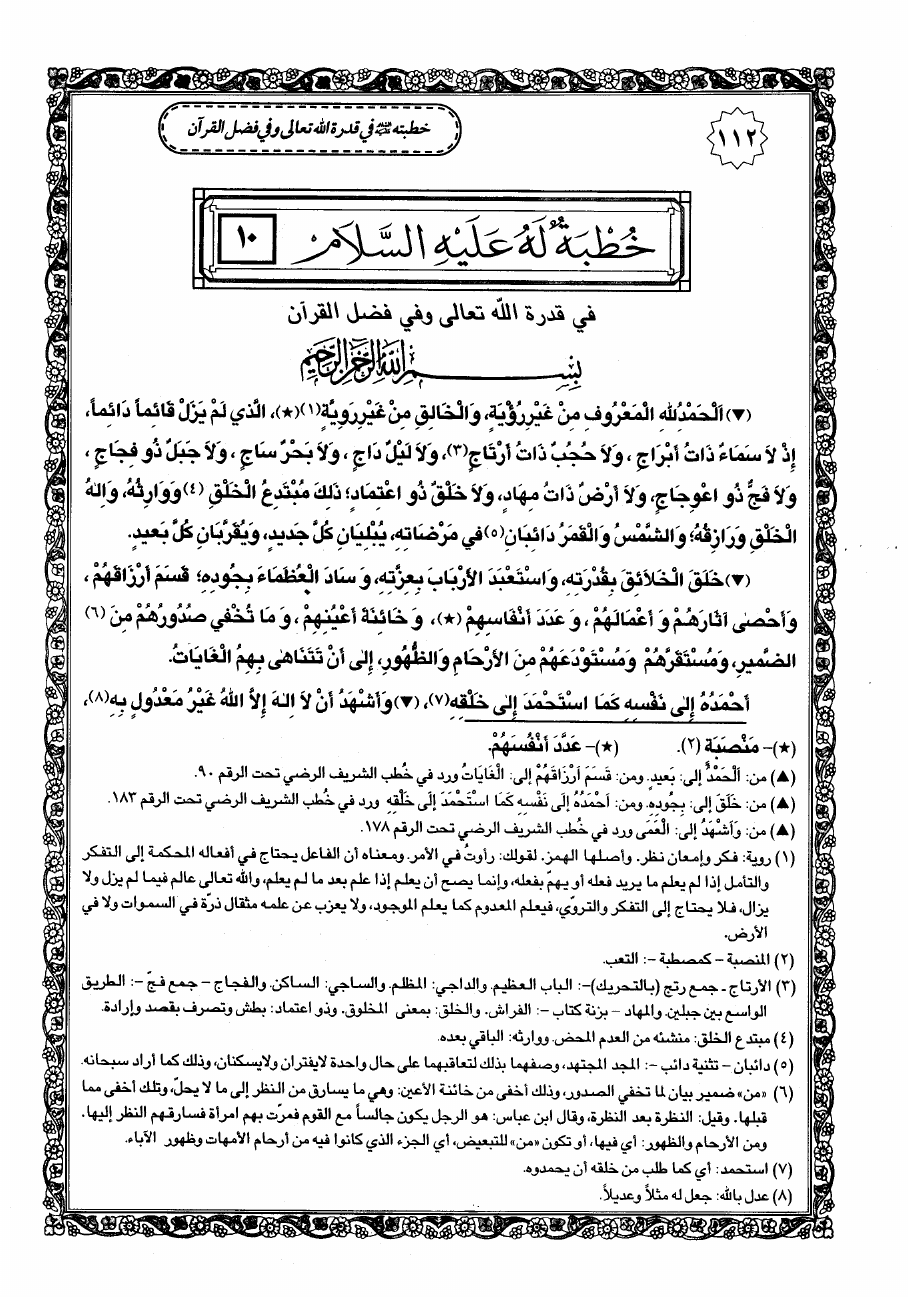 ١١٢
خطبته ﷺ في قدرة الله تعالى وفي فضل القرآن
خُطْبَةٌ لَهُ عَلَيْهِ السَّلَامُ
١٠
في قدرة اللّه تعالى وفي فضل القرآن
بِسْمِ اللهِ الرَّحْمٰنِ الرَّحِيمِ
(▼) اَلْحَمْدُ للهِ الْمَعْرُوفِ مِنْ غَيْرِ رُؤْيَةٍ، وَالْخَالِقِ مِنْ غَيْرِ رَوِيَّةٍ(١)(★)، الَّذي لَمْ يَزَلْ قَائِماً دَائِماً،
إِذْ لاَ سَمَاءٌ ذَاتُ أَبْرَاجٍ ، وَلاَ حُجُبٌ ذَاتُ أَرْتَاجٍ(٣)، وَلاَ لَيْلٌ دَاجٍ ، وَلاَ بَحْرٌ سَاجٍ ، وَلاَ جَبَلٌ ذُو فِجَاجٍ ،
وَلاَ فَجٌّ ذُو اعْوِجَاجٍ، وَلاَ أَرْضٌ ذَاتُ مِهَادٍ، وَلاَ خَلْقٌ ذُو اعْتِمَادٍ؛ ذلِكَ مُبْتَدِعُ الْخَلْقِ (٤) وَوَارِثُهُ، وَإِلهُ
الْخَلْقِ وَرَازِقُهُ؛ وَالشَّمْسُ وَالْقَمَرُ دَائِبَانِ(٥) في مَرْضَاتِهِ، يُبْلِيَانِ كُلَّ جَديدٍ، وَيُقَرِّبَانِ كُلَّ بَعيدٍ.
(▼) خَلَقَ الْخَلاَئِقَ بِقُدْرَتِهِ، وَاسْتَعْبَدَ الأَرْبَابَ بِعِزَّتِهِ، وَسَادَ الْعُظَمَاءَ بِجُودِهِ؛ قَسَمَ أَرْزَاقَهُمْ ،
وَأَحْصى آثَارَهُمْ وَ أَعْمَالَهُمْ ، وَ عَدَدَ أَنْفَاسِهِمْ (★)، وَ خَائِنَةَ أَعْيُنِهِمْ ، وَ مَا تُخْفي صُدُورُهُمْ مِنَ (٦)
الضَّميرِ، وَمُسْتَقَرَّهُمْ وَمُسْتَوْدَعَهُمْ مِنَ الأَرْحَامِ وَالظُّهُورِ، إِلى أَنْ تَتَنَاهى بِهِمُ الْغَايَاتُ.
أَحْمَدُهُ إِلى نَفْسِهِ كَمَا اسْتَحْمَدَ إِلى خَلْقِهِ(٧)، (▼) وَأَشْهَدُ أَنْ لاَ اِلهَ إِلاَّ اللهُ غَيْرُ مَعْدُولٍ بِهِ(٨)،
(★)- مَنْصَبَة (٢). (★)- عَدَّدَ أَنْفُسَهُمْ.
(▲) من: اَلْحَمْدُ إلى: بَعيدٍ. ومن: قَسَمَ أَرْزَاقَهُمْ إلى: الْغَايَاتُ ورد في خُطب الشريف الرضي تحت الرقم ٩٠.
(▲) من: خَلَقَ إلى: بِجُودِهِ. ومن: اَحْمَدُهُ إِلَى نَفْسِهِ كَمَا اسْتَحْمَدَ إِلَى خَلْقِهِ ورد في خُطب الشريف الرضي تحت الرقم ١٨٣.
(▲) من: وَأَشْهَدُ إلى: الْعَمَى ورد في خُطب الشريف الرضي تحت الرقم ١٧٨.
(١) روية: فكر وإمعان نظر. وأصلها الهمز. لقولك: رأوتُ في الأمر. ومعناه أن الفاعل يحتاج في أفعاله المحكمة إلى التفكر
والتأمل إذا لم يعلم ما يريد فعله أو يهمّ بفعله، وإنما يصح أن يعلم إذا علم بعد ما لم يعلم، والله تعالى عالم فيما لم يزل ولا
يزال، فلا يحتاج إلى التفكر والتروّي، فيعلم المعدوم كما يعلم الموجود، ولا يعزب عن علمه مثقال ذرّة في السموات ولا في
الأرض.
(٢) المنصبة - كمصطبة -: التعب.
(٣) الأرتاج ـ جمع رتج (بالتحريك)-: الباب العظيم. والداجي: المظلم. والساجي: الساكن. والفجاج - جمع فجّ -: الطريق
الواسع بين جبلين. والمهاد - بزنة كتاب -: الفراش. والخلق: بمعنى المخلوق. وذو اعتماد: بطش وتصرف بقصد وإرادة.
(٤) مبتدع الخلق: منشئه من العدم المحض. ووارثه: الباقي بعده.
(٥) دائبان - تثنية دائب -: المجد المجتهد، وصفهما بذلك لتعاقبهما على حال واحدة لايفتران ولايسكنان، وذلك كما أراد سبحانه.
(٦) «من» ضمير بيان لما تخفي الصدور، وذلك أخفى من خائنة الأعين: وهي ما يسارق من النظر إلى ما لا يحلّ، وتلك أخفى مما
قبلها. وقيل: النظرة بعد النظرة، وقال ابن عباس: هو الرجل يكون جالساً مع القوم فمرّت بهم امرأة فسارقهم النظر إليها.
ومن الأرحام والظهور: أي فيها، أو تكون «من» للتبعيض، أي الجزء الذي كانوا فيه من أرحام الأمهات وظهور الآباء.
(٧) استحمد: أي كما طلب من خلقه أن يحمدوه.
(٨) عدل بالله: جعل له مثلاً وعديلاً.